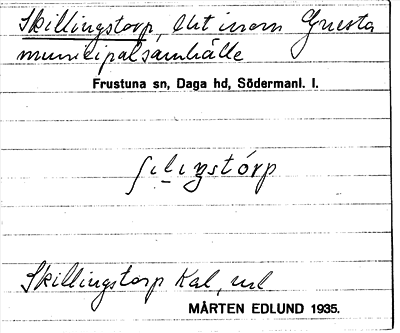 Skillingstorp, lht inom Gnesta
municipalsamhälle
Frustuna sn, Daga hd, Södermanl. l.
Skillingstorp Kal, url
MÅRTEN EDLUND 1935.